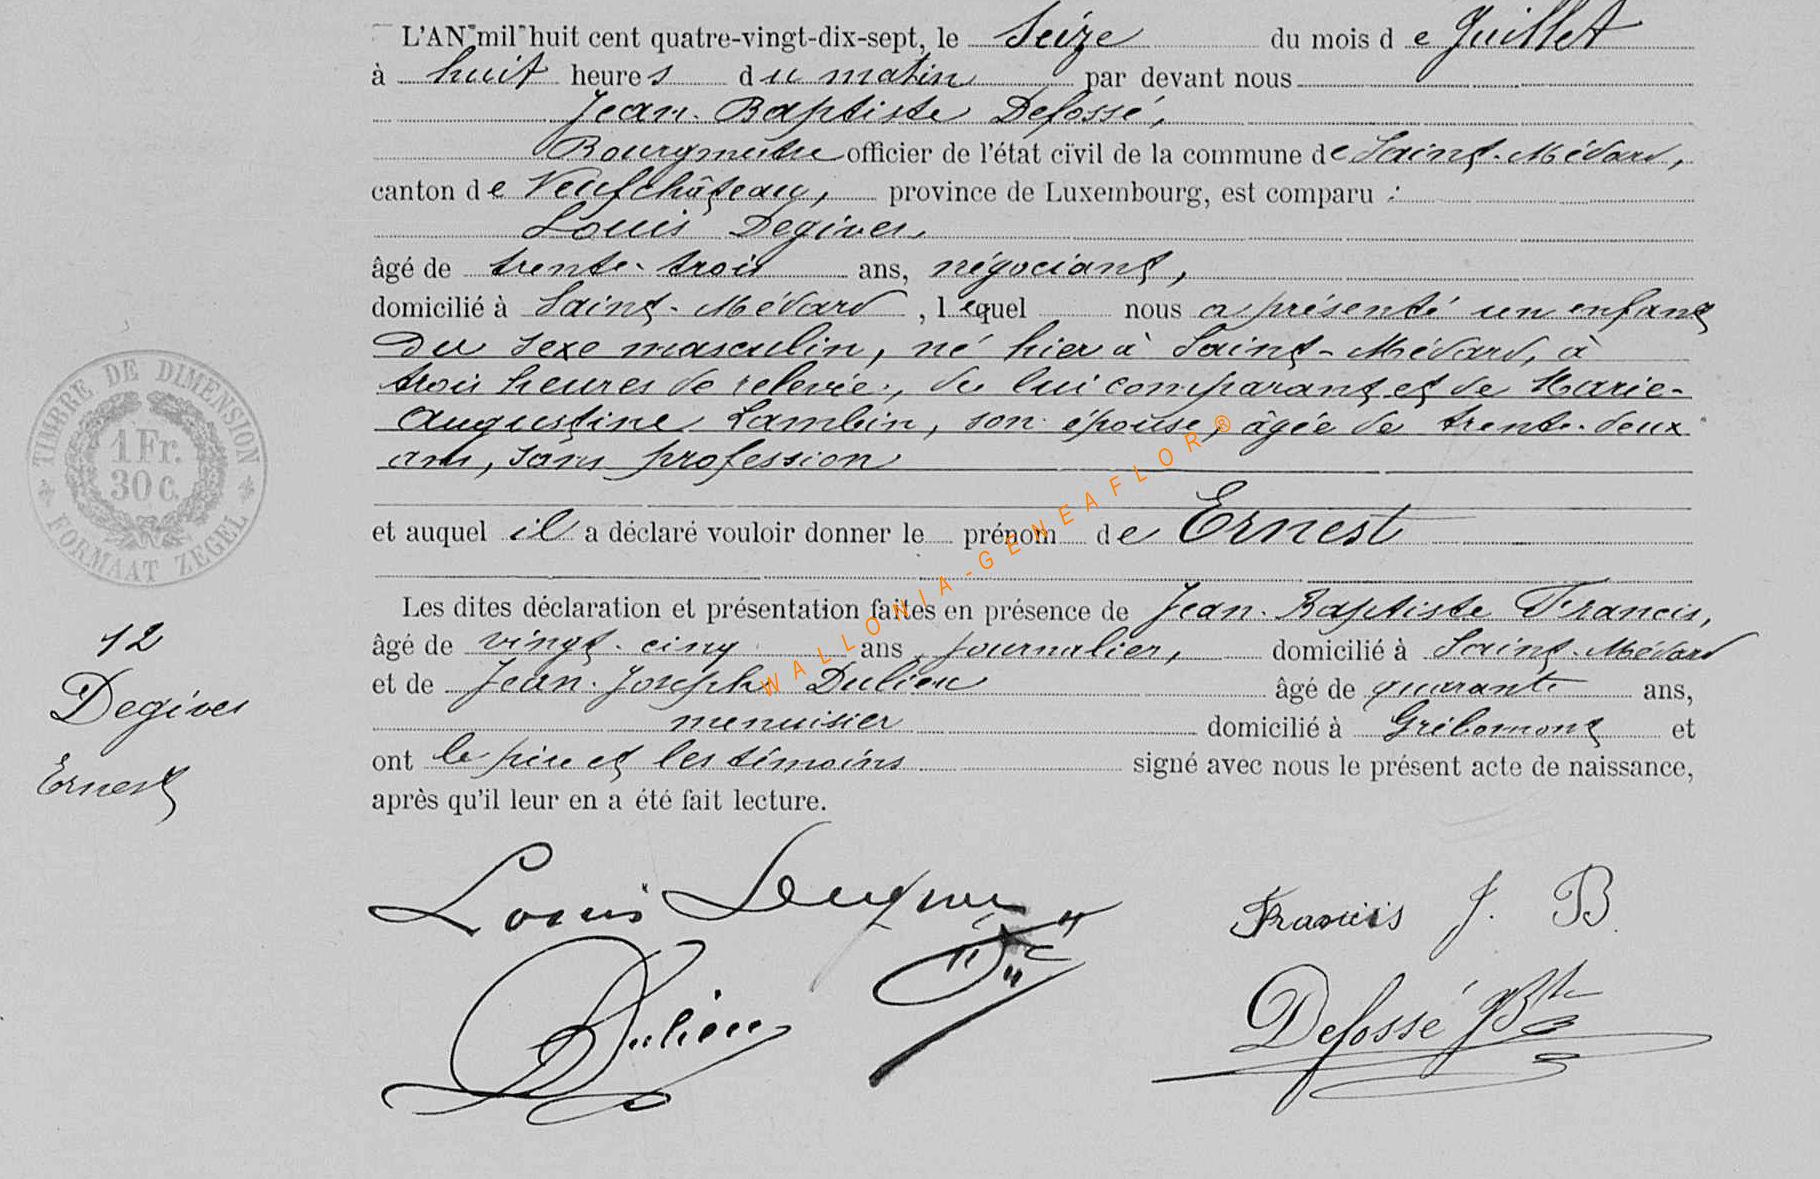 L'AN mil huit cent quatre-vingt-dix-sept, le Seize du mois de Juillet
à huit heures du matin par devant nous
Jean-Baptiste Defossé,
Bourgmestre officier de l'état civil de la commune de Saint-Médard,
canton de Neufchâteau, province de Luxembourg, est comparu :
Louis Degives,
âgé de trente-trois ans, négociant,
domicilié à Saint-Médard, lequel nous a présenté un enfant
du sexe masculin, né hier à Saint-Médard, à
trois heures de relevée, de lui comparant et de Marie-
Augustine Lambin, son épouse, âgée de trente-deux
ans, sans profession
et auquel il a déclaré vouloir donner le prénom de Ernest
Les dites déclaration et présentation faites en présence de Jean-Baptiste Francis,
âgé de vingt-cinq ans, journalier, domicilié à Saint-Médard
et de Jean-Joseph Dulieu âgé de quarante ans,
menuisier domicilié à Gribomont et
ont le père et les témoins signé avec nous le présent acte de naissance,
après qu'il leur en a été fait lecture.
TIMBRE DE DIMENSION
1 Fr.
30 c.
FORMAAT ZEGEL
12
Degives
Ernest
WALLONIA-GENEAFLOR®
Louis Degives
Francis J. B.
Dulieu
Defossé JBte